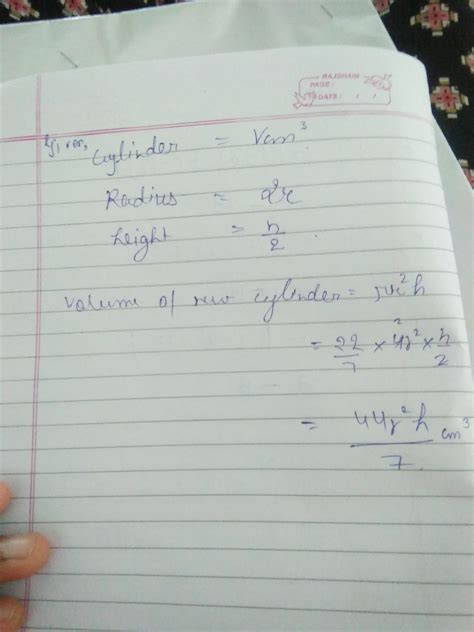 RAJDHANI
PAGE:
DATE: / /
Given, Cylinder = Vcm³.
Radius = 2r
height = h/2.
Volume of new cylinder = πr²h
= 22/7 × 4r² × h/2
= 44r²h/7 cm³